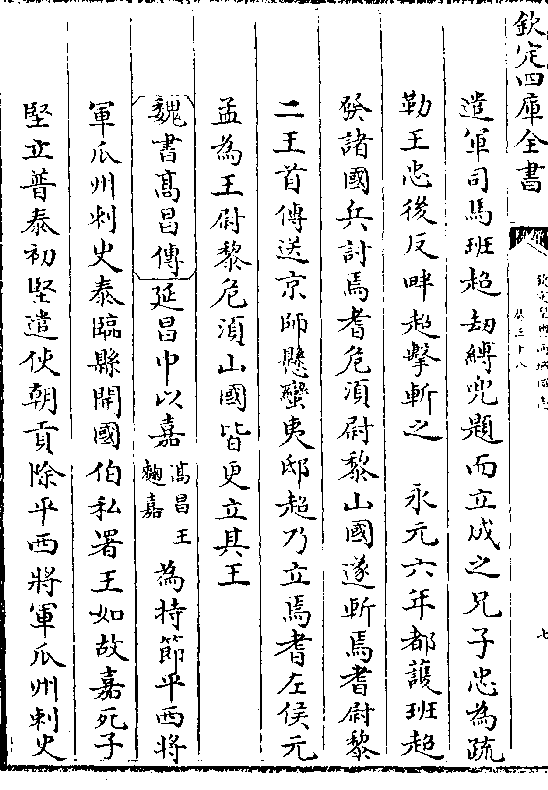 欽定四庫全書
欽定皇輿西域圖志
卷三十八
七
遣軍司馬班超劫縛兜題而立成之兄子忠為疏
勒王忠後反畔超擊斬之　永元六年都護班超
發諸國兵討焉耆危須尉黎山國遂斬焉耆尉黎
二王首傳送京師懸蠻夷邸超乃立焉耆左侯元
孟為王尉黎危須山國皆更立其王
魏書髙昌傳延昌中以嘉髙昌王麴嘉為持節平西將
軍瓜州刺史泰臨縣開國伯私署王如故嘉死子
堅立普泰初堅遣使朝貢除平西將軍瓜州刺史